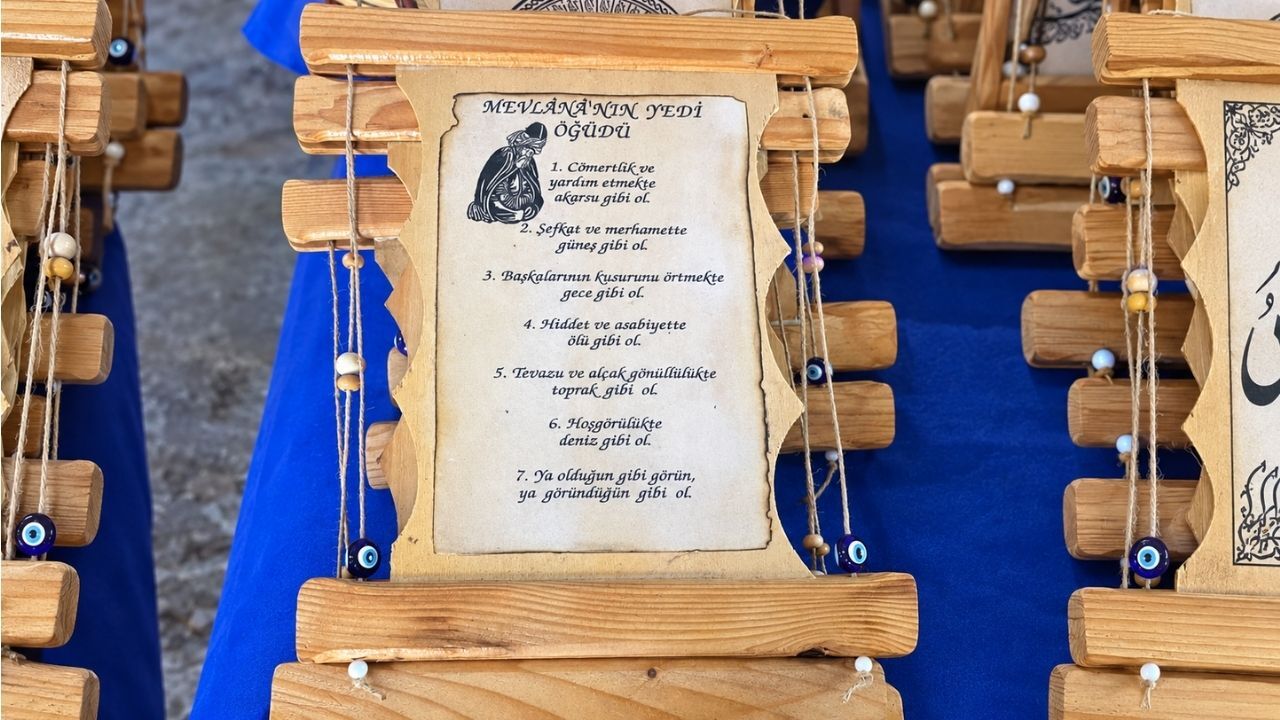 MEVLÂNÂ'NIN YEDİ
ÖĞÜDÜ
1. Cömertlik ve
yardım etmekte
akarsu gibi ol.
2. Şefkat ve merhamette
güneş gibi ol.
3. Başkalarının kusurunu örtmekte
gece gibi ol.
4. Hiddet ve asabiyette
ölü gibi ol.
5. Tevazu ve alçak gönüllülükte
toprak gibi ol.
6. Hoşgörülükte
deniz gibi ol.
7. Ya olduğun gibi görün,
ya göründüğün gibi ol.